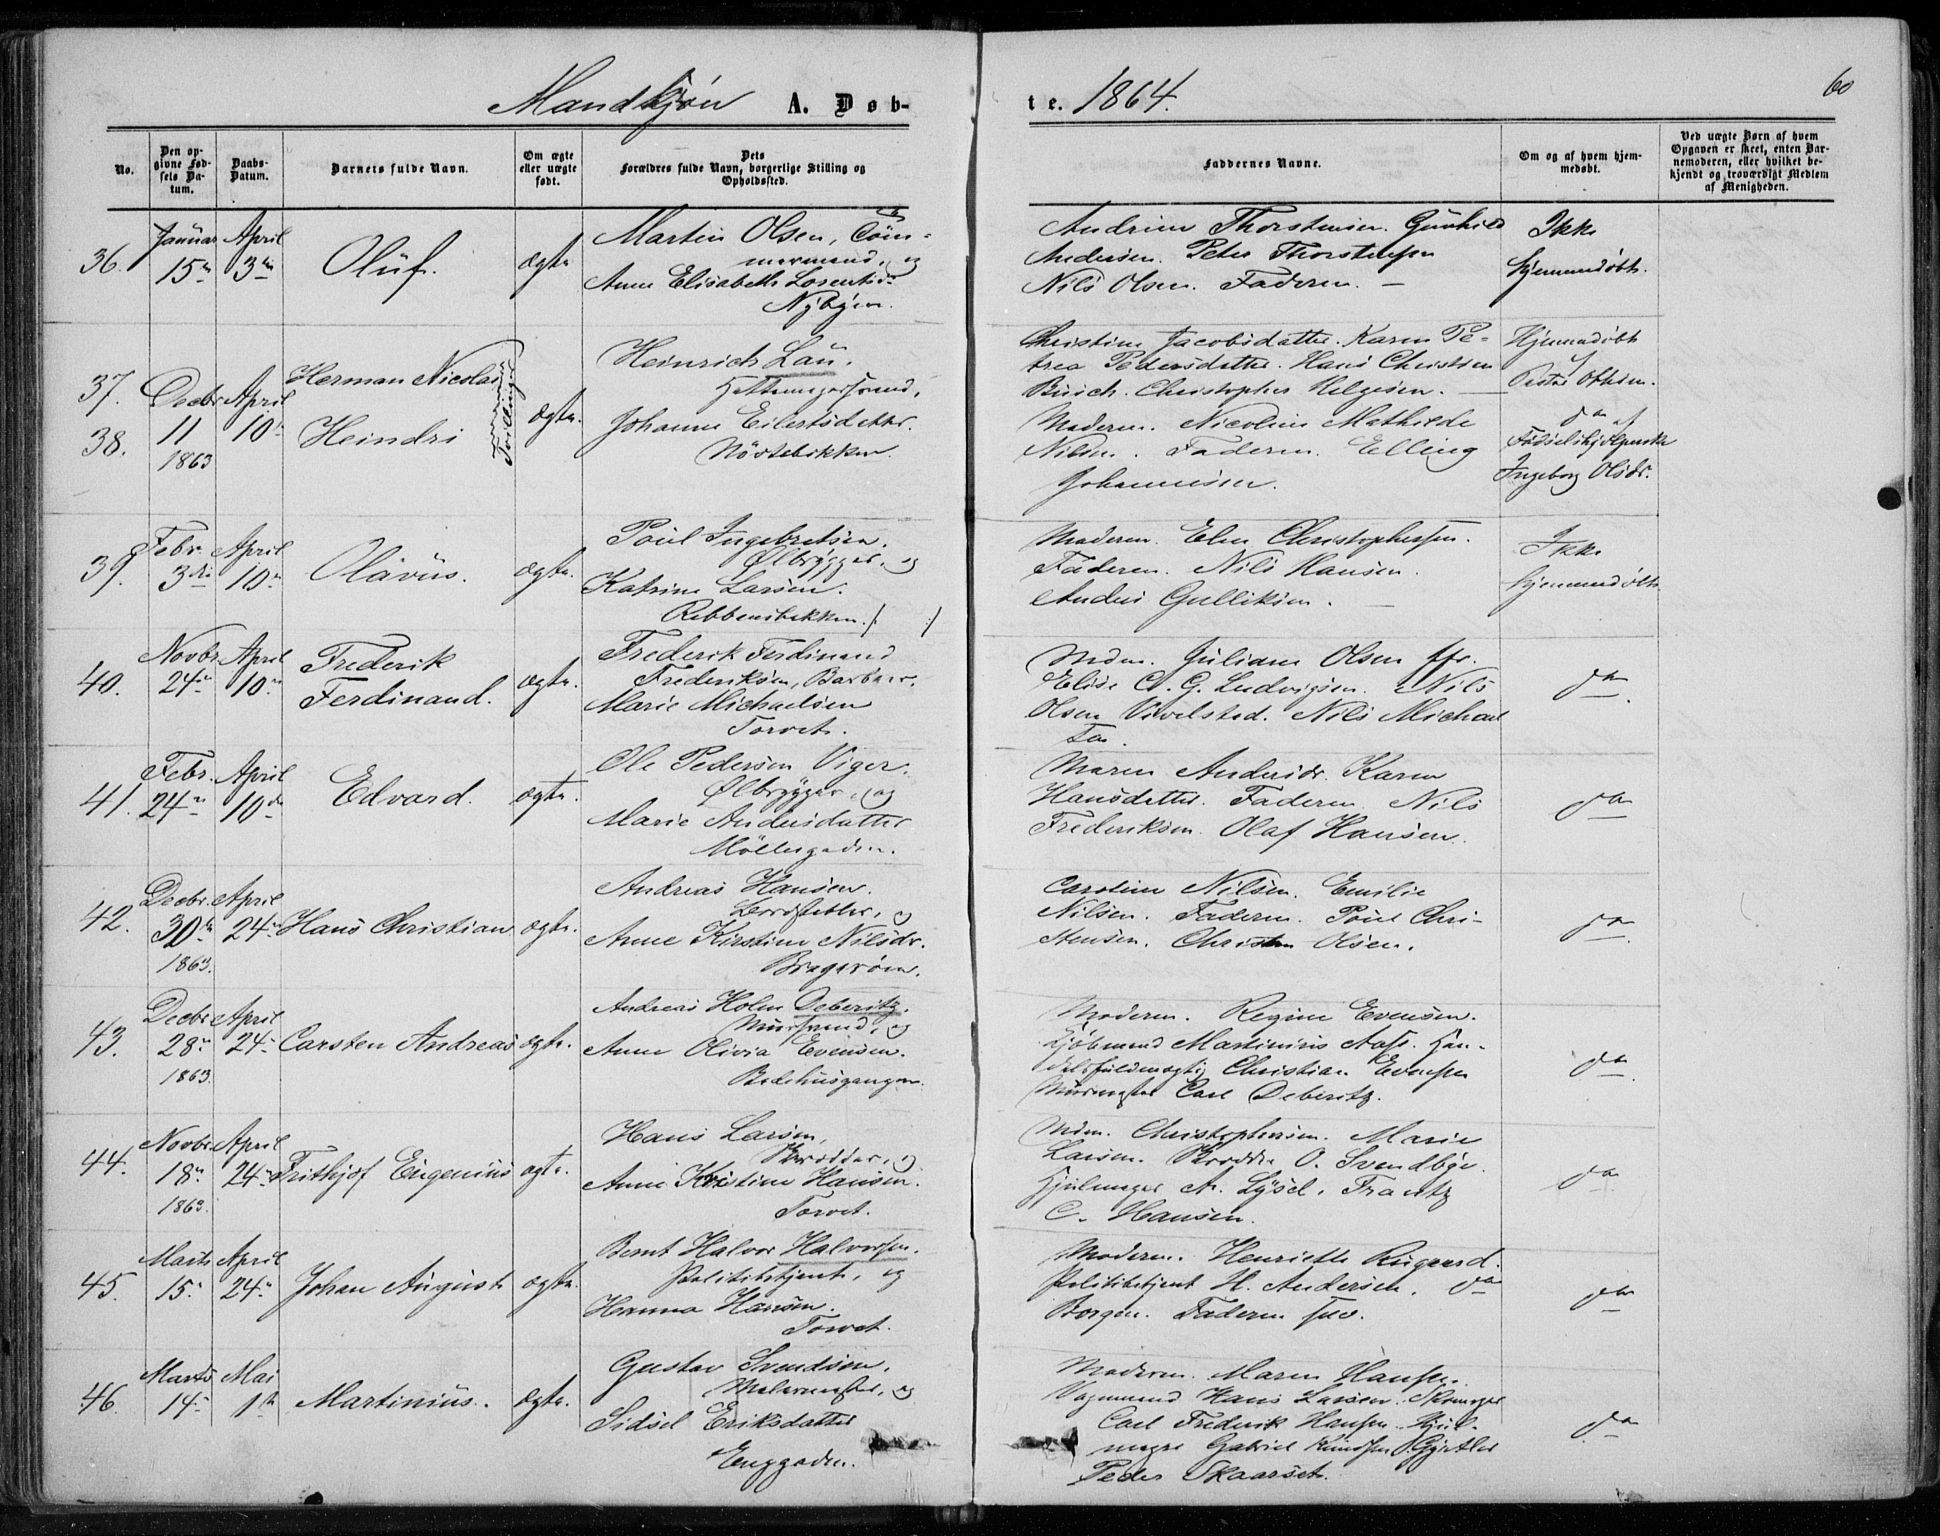 Mandkjön A. Døb-
te. 1864.
60
No.
Den op-
givne Fød-
sels Da-
tum.
Daabs-
Datum.
Barnets fulde Navn.
Om ægte
eller uægte
født.
Dets
Forældres fulde Navn, borgerlige Stilling og
Opholdssted.
Faddernes Navne.
Om og af hvem hjem-
medøbt.
Ved uægte Børn af hvem
Opgaven er skeet, enten Bar-
nemoderen, eller hvilket be-
kjendt og troværdigt Medlem
af Menigheden.
36.
Januar
15de
April
3die
Oluf.
ægte
Martin Olsen, Töm-
mermand, og
Anne Elisabeth
Nybyen.
Thorstensen. Gunhild
Andersen. Peter Thorstensen
Nils Olsen. Faderen. —
Ikke
hjemmedöbt.
37.
38.
Decbr
11
1863
April
10
Herman Nicolai
Heindri
Tvillinger
ægte.
Heinrich Lau,
Johanne Eilertsdatter.
Nöstebikken
Christine Jacobsdatter. Karen Pe-
trea Pedersdatter. Hans Christian
Busch. Christopher Helgesen. —
Moderen. Nicoline Mathilde
Nilsen. Faderen. Elling
Johannesen.
Hjemmedöbt
af
do af
Födselshjelperske
Ingeborg Olsdr.
39.
Febr.
3die
April
10de
Olavus.
ægte.
Poul Ingebretsen,
Ölbrygger, og
Katrine Larsen.
Ribbensbakken
Moderen. Elen Christophersen.
Faderen. Nils Hansen.
Anders Gulliksen. —
Ikke
hjemmedöbt
40.
Novbr
24de
April
10de
Frederik
Ferdinand.
ægte.
Frederik Ferdinand
Frederiksen, Barbeer.
Marie Michaelsen
Torvet.
Mdm. Juliane Olsen
Elise C. G. Ludvigsen. Nils
Olsen Vivelsted. Nils Michael
do
41.
Febr.
24de
April
10de
Edvard.
ægte.
Ole Pedersen Viger,
Ölbrygger, og
Marie Andersdatter
Möllergaden.
Maren Andersdr. Karen
Hansdatter. Faderen. Nils
Frederiksen. Olaf Hansen.
do
42.
Decbr.
30de
1863.
April
24de
Hans Christian
ægte.
Andreas Hansen.
og
Anne Kirstine Nilsdr.
Bragerøen.
Caroline Nilsen. Emilie
Nilsen. Faderen. Poul Chri-
stensen. Christen Olsen.
do
43.
Decbr
28de
1863.
April
24de
Carsten Andreas
ægte.
Andreas Holm Deberitz,
Muursvend, og
Anne Olivia Evensen.
Bedehusgangen.
Moderen. Regine Evensen.
Kjöbmand Martinius Aass. Han-
delsfuldmægtig Christian Evensen
Muurmester Carl Deberitz.
do
44.
Novbr
18de
1863.
April
24de
Frithjof Eugenius
ægte.
Hans Larsen,
Skrædder, og
Anne Kristine Hansen.
Torvet.
Mdm. Christophersen. Marie
Larsen. Skrædder O. Svendbye.
Hjulmager A. Lysel. Frantz
C. Hansen.
do
45.
Marts
15de
April
24de
Johan August
ægte.
Bernt Halvor Halvorsen.
Politibetjent, og
Hanna Hansen.
Torvet.
Moderen. Henriette
Politibetjent H. Andersen. do
Borgen. Faderen
do
46.
Marts
14de
Mai
1ste
Martinius.
ægte.
Gustav Svendsen,
Malermester, og
Sidsel Eriksdatter
Enggaden.
Moderen. Maren Hansen.
Vognmand Hans Larsen. Skomager
Carl Frederik Hansen. Hjul-
mager Gabriel Knudsen. Gjörtler
Peder Skaarset.
do